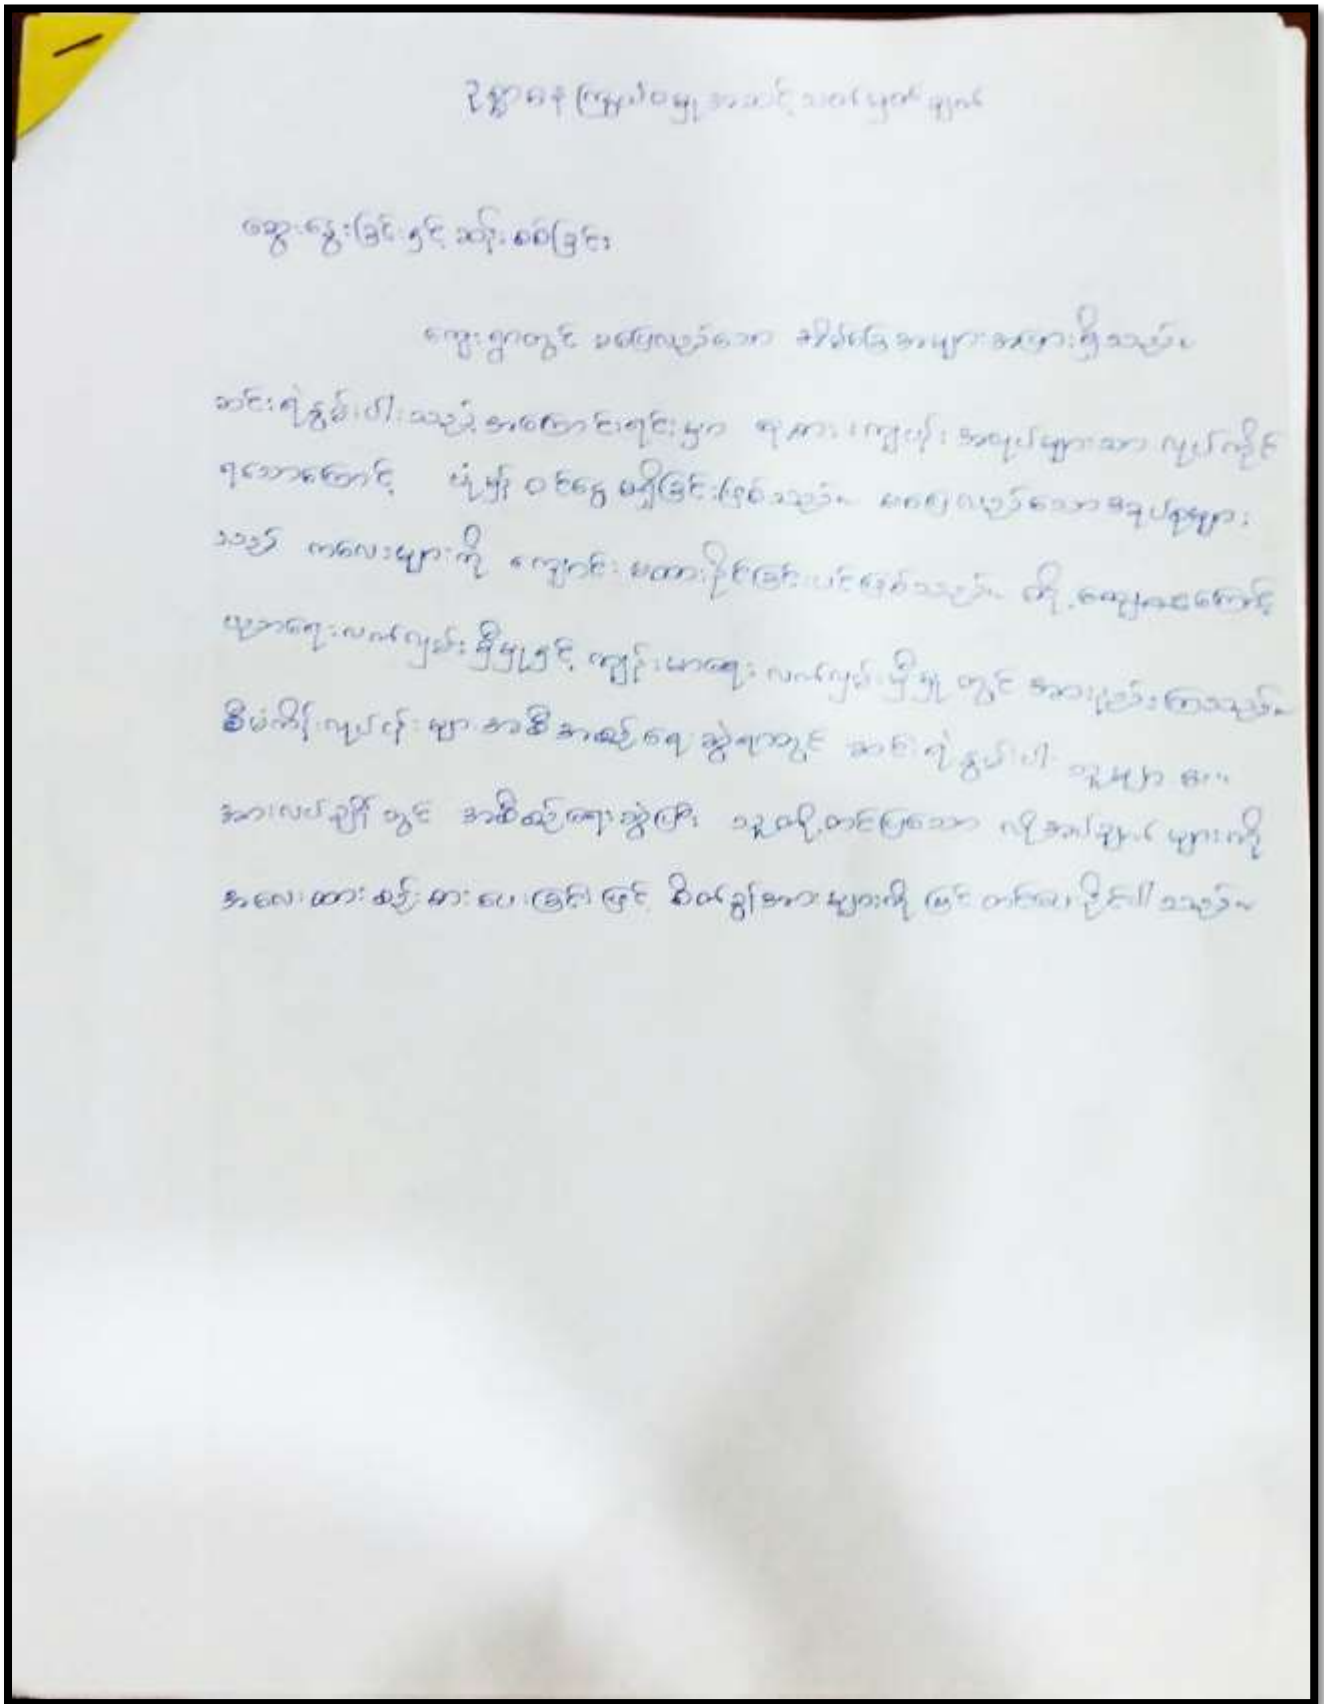 ဥစ္စာဓန ကြွယ်ဝမှု အဆင့် သတ်မှတ်ချက်
ဆွေးနွေးခြင်းနှင့် ဆန်းစစ်ခြင်း
ကျေးရွာတွင် မပြေလည်သော အိမ်ခြေအများအပြားရှိသည်။
ဆင်းရဲနွမ်းပါးသည့် အကြောင်းရင်းမှာ ကျပန်း အလုပ်များသာ လုပ်ကိုင်
ရသောကြောင့် ပုံမှန် ဝင်ငွေ မရှိခြင်းဖြစ်သည်။ မပြေလည်သော အုပ်စုများ
သည် ကလေးများကို ကျောင်း မထားနိုင်ခြင်းပင်ဖြစ်သည်။ ထို့ကြောင့်
ပညာရေးလက်လှမ်းမှီမှုနှင့် ကျန်းမာရေး လက်လှမ်းမှီမှု တွင် အားနည်းကြသည်။
စီမံကိန်းလုပ်ငန်းများ အစီအစဉ်ရေးဆွဲရာတွင် ဆင်းရဲနွမ်းပါး သူများ
အားလပ်ချိန်တွင် အစီစဉ်ရေးဆွဲပြီး သူတို့တင်ပြသော လိုအပ်ချက်များကို
အလေးထားစဉ်းစားပေးခြင်းဖြင့် စိတ်ခွန်အားများကို မြှင့်တင်ပေးနိုင်ပါသည်။